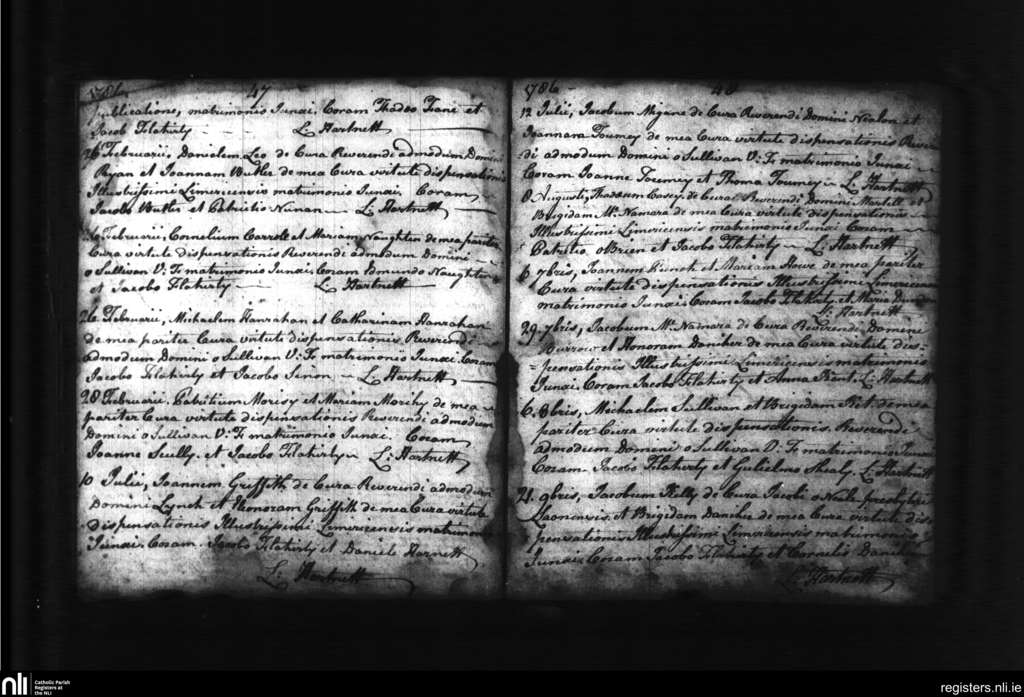 1786 47
publicatione, matrimonio Junxi. Coram Thadeo Tiani et
Jacob Flahirty L. Hartnett
26 Februarii, Danielem Leo de Cura Reverendi admodum Domini
Ryan et Joannam Butler de mea Cura virtute dispensationis
Illustrissimi Limericensis matrimonio Junxi. Coram
Jacobo Butler et Patritio Nunan L. Hartnett
26 Februarii, Cornelium Carroll et Mariam Naughten de mea pariter
Cura virtute dispensationis Reverendi admodum Domini
o Sullivan V: F: matrimonio Junxi Coram Edmundo Naughten
et Jacobo Flahirty L. Hartnett
26 Februarii, Michaelem Hanrahan et Catharinam Hanrahan
de mea pariter Cura virtute dispensationis Reverendi
admodum Domini o Sullivan V: F: matrimonio Junxi Coram
Jacobo Flahirty et Jacobo Sinon L. Hartnett
28 Februarii, Patritium Morisy et Mariam Morihy de mea
pariter Cura virtute dispensationis Reverendi admodum
Domini o Sullivan V: F: matrimonio Junxi. Coram
Joanne Scully et Jacobo Flahirty L: Hartnett
10 Julii, Joannem Griffith de Cura Reverendi admodum
Domini Lynch et Honoram Griffith de mea Cura virtute
dispensationis Illustrissimi Limericensis matrimonio
Junxi. Coram Jacobo Flahirty et Daniele Harnett
L: Hartnett
1786 48
12 Julii, Jacobum Magene de Cura Reverendi Domini Nealon et
Joannam Toumey de mea Cura virtute dispensationis Reveren
di admodum Domini o Sullivan V: F: matrimonio Junxi
Coram Joanne Toumey et Thoma Toumey L. Hartnett
8 Augusti, Thadeum Casey de Cura Reverendi Domini Martell et
Brigidam Mc. Namara de mea Cura virtute dispensationis
Illustrissimi Limericensis matrimonio Junxi Coram
Patritio o Brien et Jacobo Flahirty L: Hartnett
6 7bris, Joannem et Mariam Howe de mea pariter
Cura virtute dispensationis Illustrissimi Limericensis
matrimonio Junxi Coram Jacobo Flahirty et Maria
L: Hartnett
29 7bris, Jacobum Mc. Namara de Cura Reverendi Domini
et Honoram Daniher de mea Cura virtute dis
pensationis Illustrissimi Limericensis matrimonio
Junxi. Coram Jacobo Flahirty et Anna L: Hartnett
6. 8bris, Michaelem Sullivan et Brigidam de mea
pariter Cura virtute dispensationis Reverendi
admodum Domini o Sullivan V: F: matrimonio Junxi
Coram Jacobo Flahirty et Gulielmo Shealy L: Hartnett
21. 9bris, Jacobum Kelly de Cura Jacobi o Neile presbyteri
Laonensis et Brigidam Daniher de mea Cura virtute dis
pensationis Illustrissimi Limericensis matrimonio
Junxi Coram Jacobo Flahirty et Cornelio Daniher
L: Hartnett
nli Catholic Parish
Registers at
the NLI
registers.nli.ie